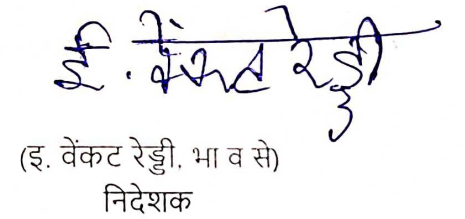 ई. वेंकट रेड्डी
(इ. वेंकट रेड्डी, भा व से)
निदेशक